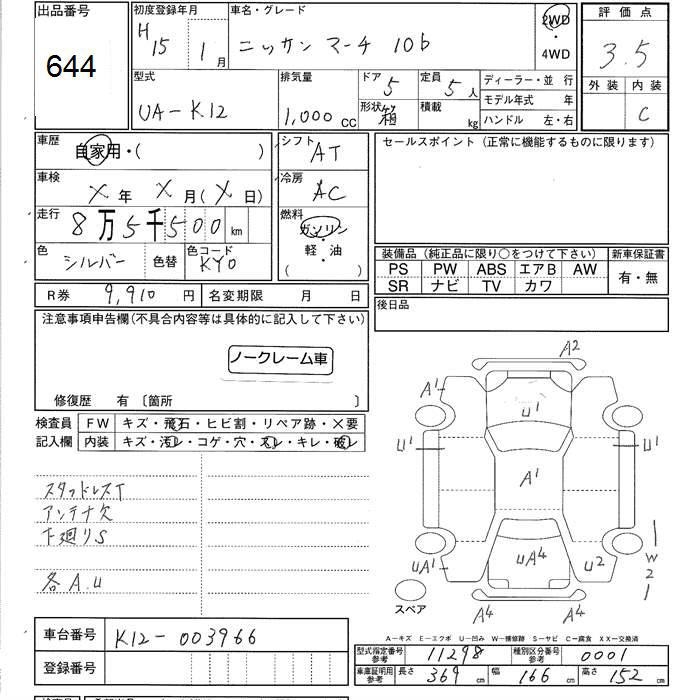 出品番号
644
初度登録年月
H 15 1月
車名・グレード
ニッサン マーチ 10b
2WD
・
4WD
評価点
3.5
外装 内装
C
型式
UA-K12
排気量
1,000 CC
ドア 5
形状 箱
定員 5人
積載 kg
ディーラー・並 行
モデル年式 年
ハンドル 左・右
車歴
自家用・( )
シフト AT
車検
X年 X月(X日)
冷房 AC
走行
8万5千500km
燃料
ガソリン
・
軽・油
( )
色
シルバー 色替
色コード
KY0
R券 9,910円
名変期限 月 日
セールスポイント(正常に機能するものに限ります)
装備品(純正品に限り○をつけて下さい)
新車保証書
PS PW ABS エアB AW
SR ナビ TV カワ
有・無
後日品
注意事項申告欄(不具合内容等は具体的に記入して下さい)
ノークレーム車
修復歴 有 〔箇所 〕
検査員
記入欄
FW キズ・飛石・ヒビ割・リペア跡・×要
内装 キズ・汚レ・コゲ・穴・スレ・キレ・破レ
スタッドレスT
アンテナ欠
下廻りS
各A.U
A2
A1
U1
U1
U1
A1
UA1
UA4
U2
W2
A4
A4
スペア
A-キズ E-エクボ U-凹み W-補修跡 S-サビ C-腐食 XX-交換済
車台番号 K12-003966
登録番号
型式指定番号
参考
11298
種別区分番号
参考
0001
車庫証明用
参考
長さ 369cm
幅 166cm
高さ 152cm